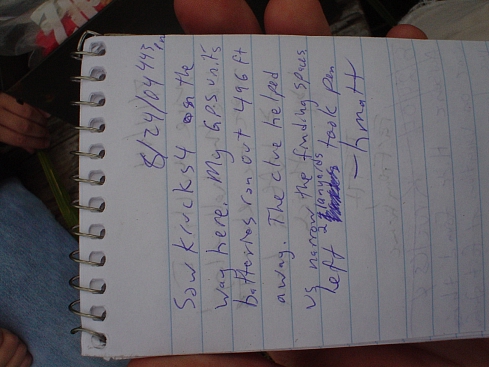 8/24/04 443 pm
Saw kruck54 on the
way here. My G.P.S unit's
batteries ran out 496 ft
away. The clue helped
us narrow the finding spaces
left 2 lanyards took pen